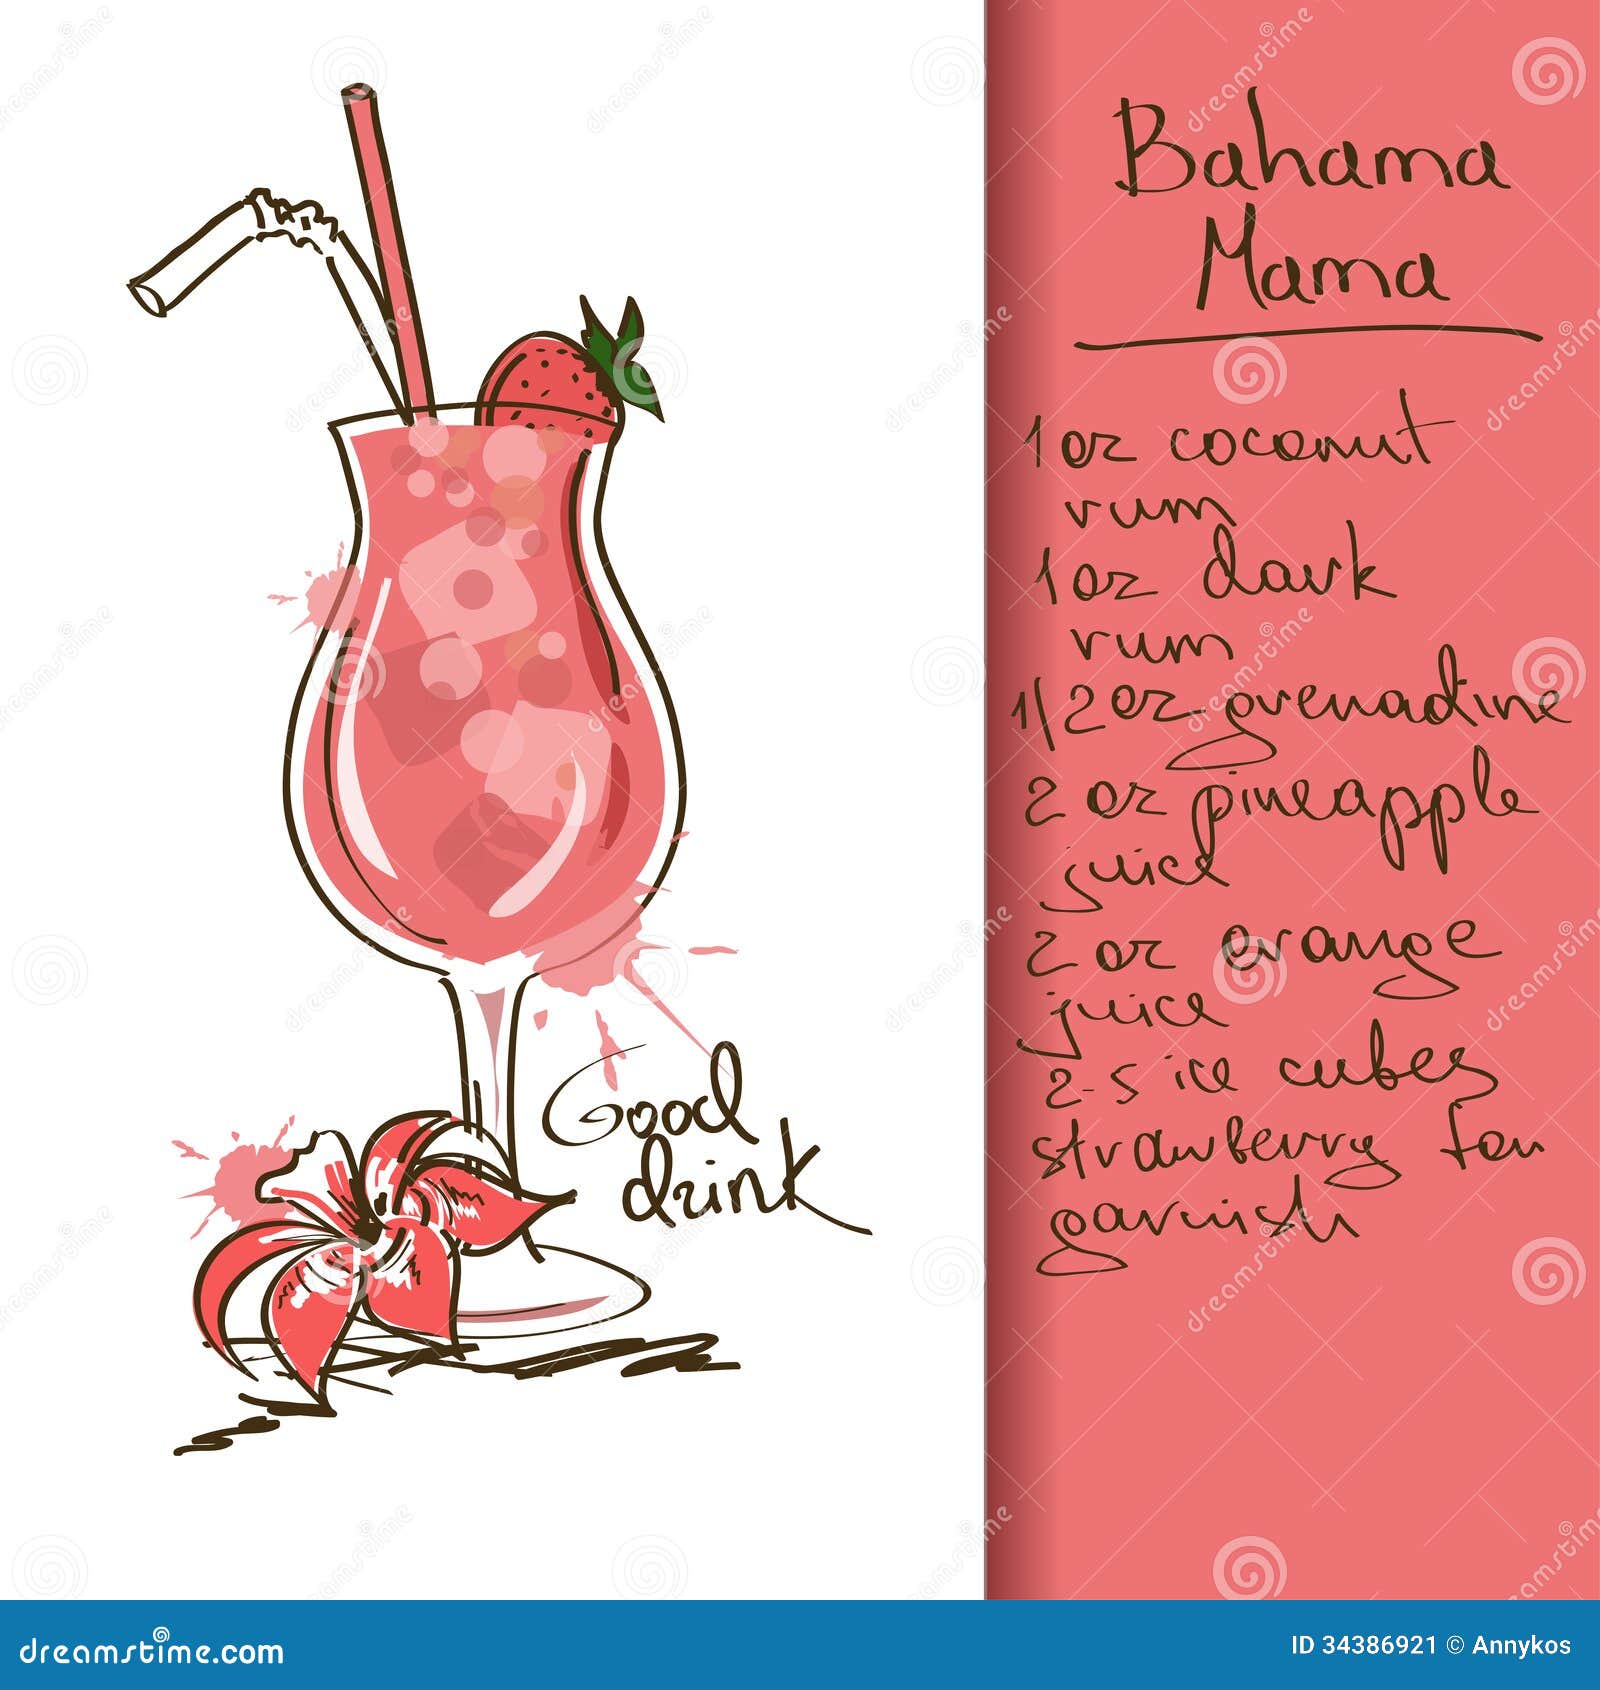 Bahama
Mama
1 oz coconut
rum
1 oz dark
rum
1/2 oz grenadine
2 oz pineapple
juice
2 oz orange
juice
2-5 ice cubes
strawberry for
garnish
Good
drink
dreamstime.com
ID 34386921 © Annykos